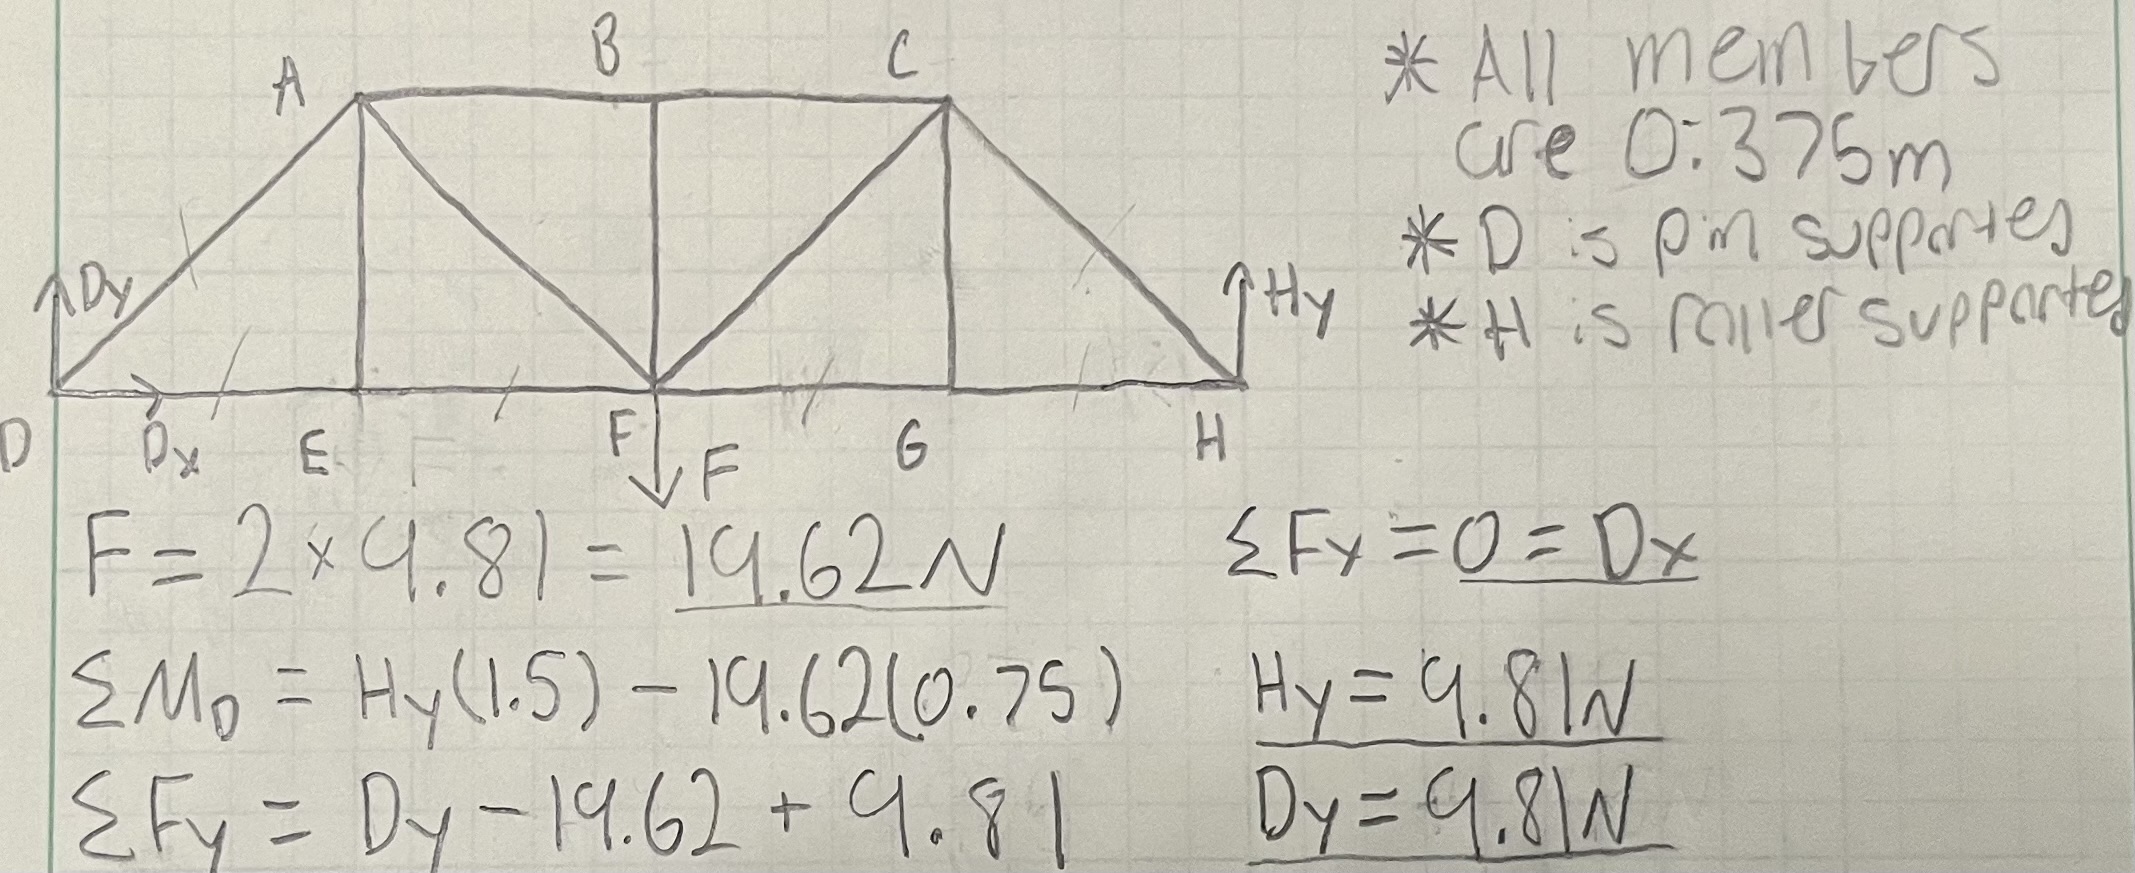 A B C
* All members
are 0.375m
* D is pin supported
* H is roller supported
Dy
Hy
D Dx E F F G H
F = 2 × 9.81 = 19.62N
ΣFx = 0 = Dx
ΣM_D = Hy(1.5) - 19.62(0.75)
Hy = 9.81N
ΣFy = Dy - 19.62 + 9.81
Dy = 9.81N